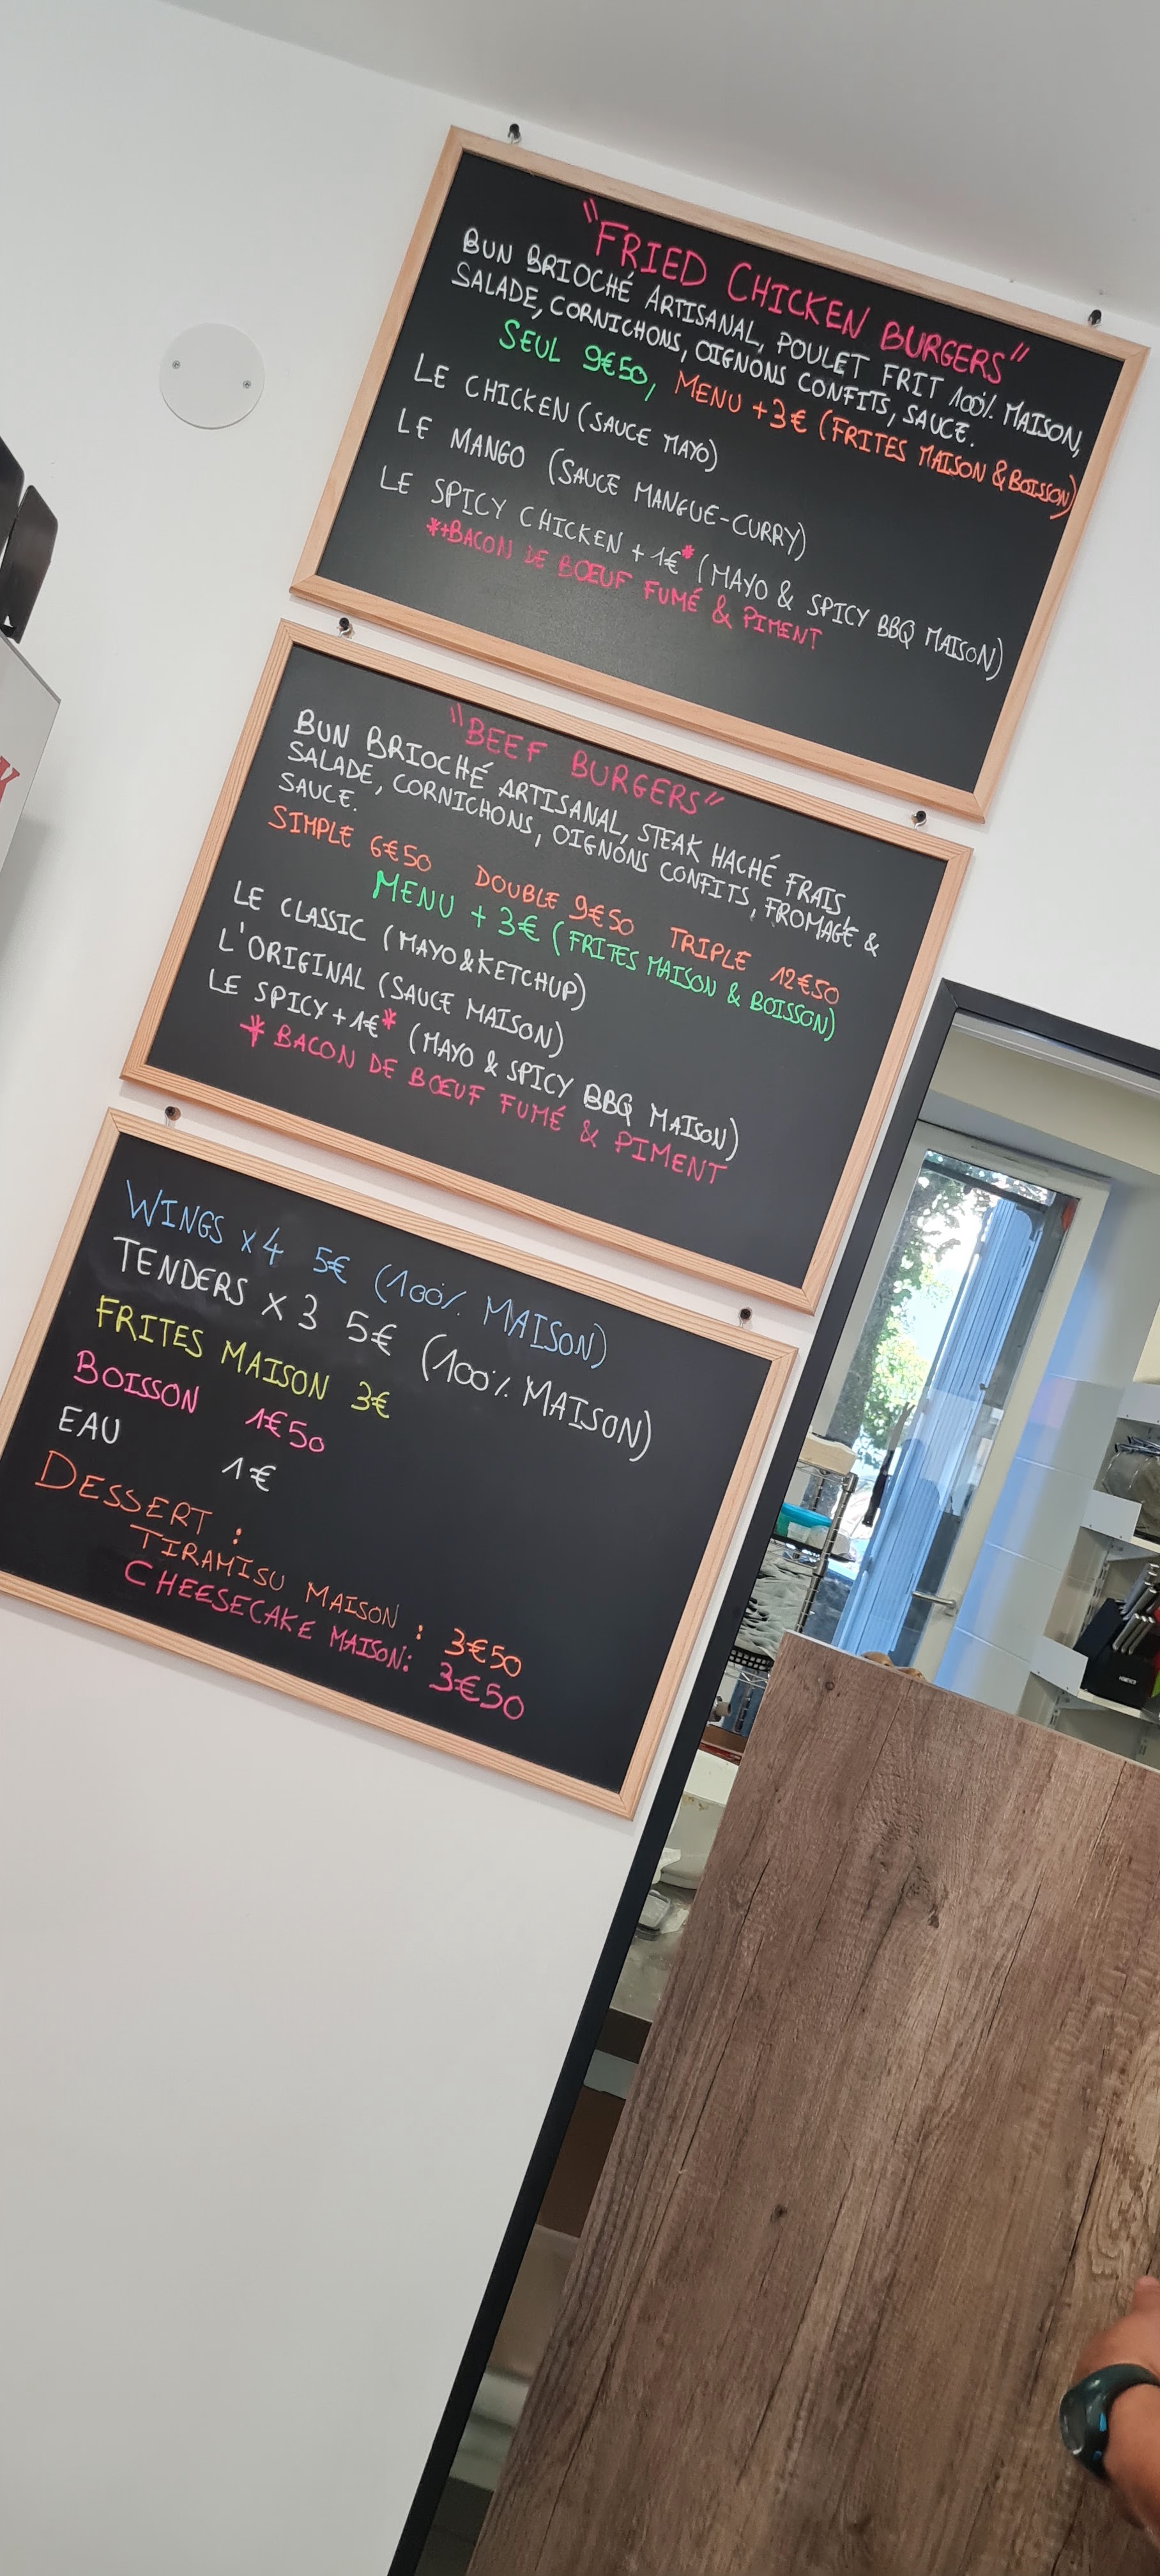 "FRIED CHICKEN BURGERS"
BUN BRIOCHÉ ARTISANAL, POULET FRIT 100% MAISON,
SALADE, CORNICHONS, OIGNONS CONFITS, SAUCE.
SEUL 9€50, MENU +3€ (FRITES MAISON & BOISSON)
LE CHICKEN (SAUCE MAYO)
LE MANGO (SAUCE MANGUE-CURRY)
LE SPICY CHICKEN +1€* (MAYO & SPICY BBQ MAISON)
*+BACON DE BŒUF FUMÉ & PIMENT
"BEEF BURGERS"
BUN BRIOCHÉ ARTISANAL, STEAK HACHÉ FRAIS,
SALADE, CORNICHONS, OIGNONS CONFITS, FROMAGE &
SAUCE.
SIMPLE 6€50 DOUBLE 9€50 TRIPLE 12€50
MENU + 3€ (FRITES MAISON & BOISSON)
LE CLASSIC (MAYO & KETCHUP)
L'ORIGINAL (SAUCE MAISON)
LE SPICY +1€* (MAYO & SPICY BBQ MAISON)
* BACON DE BŒUF FUMÉ & PIMENT
WINGS x4 5€ (100% MAISON)
TENDERS x 3 5€ (100% MAISON)
FRITES MAISON 3€
BOISSON 1€50
EAU 1€
DESSERT :
TIRAMISU MAISON : 3€50
CHEESECAKE MAISON: 3€50